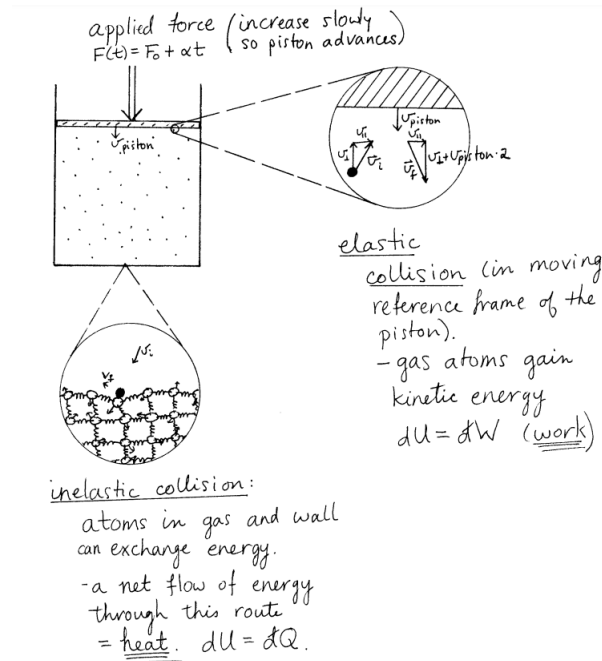 applied force (increase slowly
F(t) = F₀ + αt so piston advances)
v piston
v piston
v∥ v∥
v⊥ v⃗i v⃗f v⊥+v piston·2
elastic
collision (in moving
reference frame of the
piston).
- gas atoms gain
kinetic energy
dU = đW (work)
v⃗i
v⃗f
inelastic collision:
atoms in gas and wall
can exchange energy.
- a net flow of energy
through this route
= heat. dU = đQ.